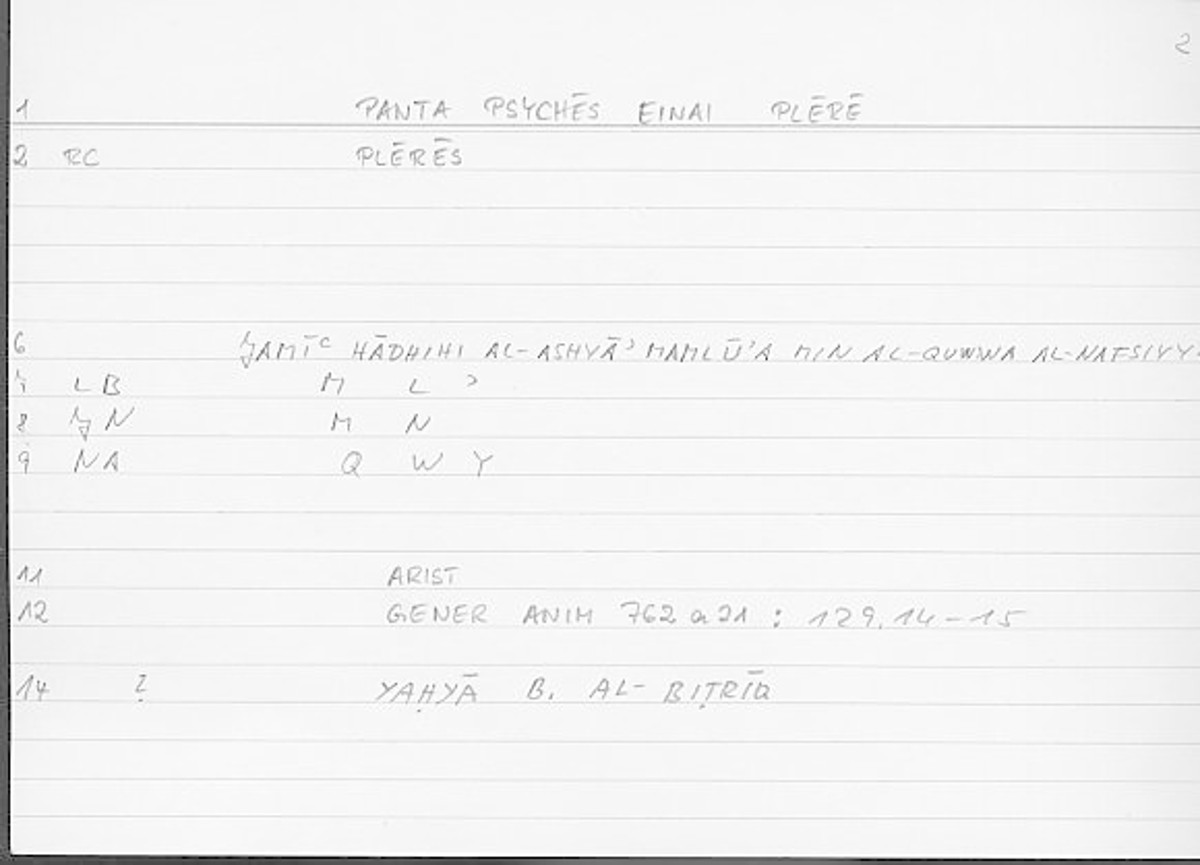 2
1 PANTA PSYCHĒS EINAI PLĒRĒ
2 RC PLĒRĒS
6 JAMĪʿ HĀDHIHI AL-ASHYĀʾ MAMLŪʾA MIN AL-QUWWA AL-NAFSIYY
7 LB M L ʾ
8 JN M N
9 NA Q W Y
11 ARIST
12 GENER ANIM 762 a 21 : 129.14-15
14 ? YAḤYĀ B. AL-BIṬRĪQ